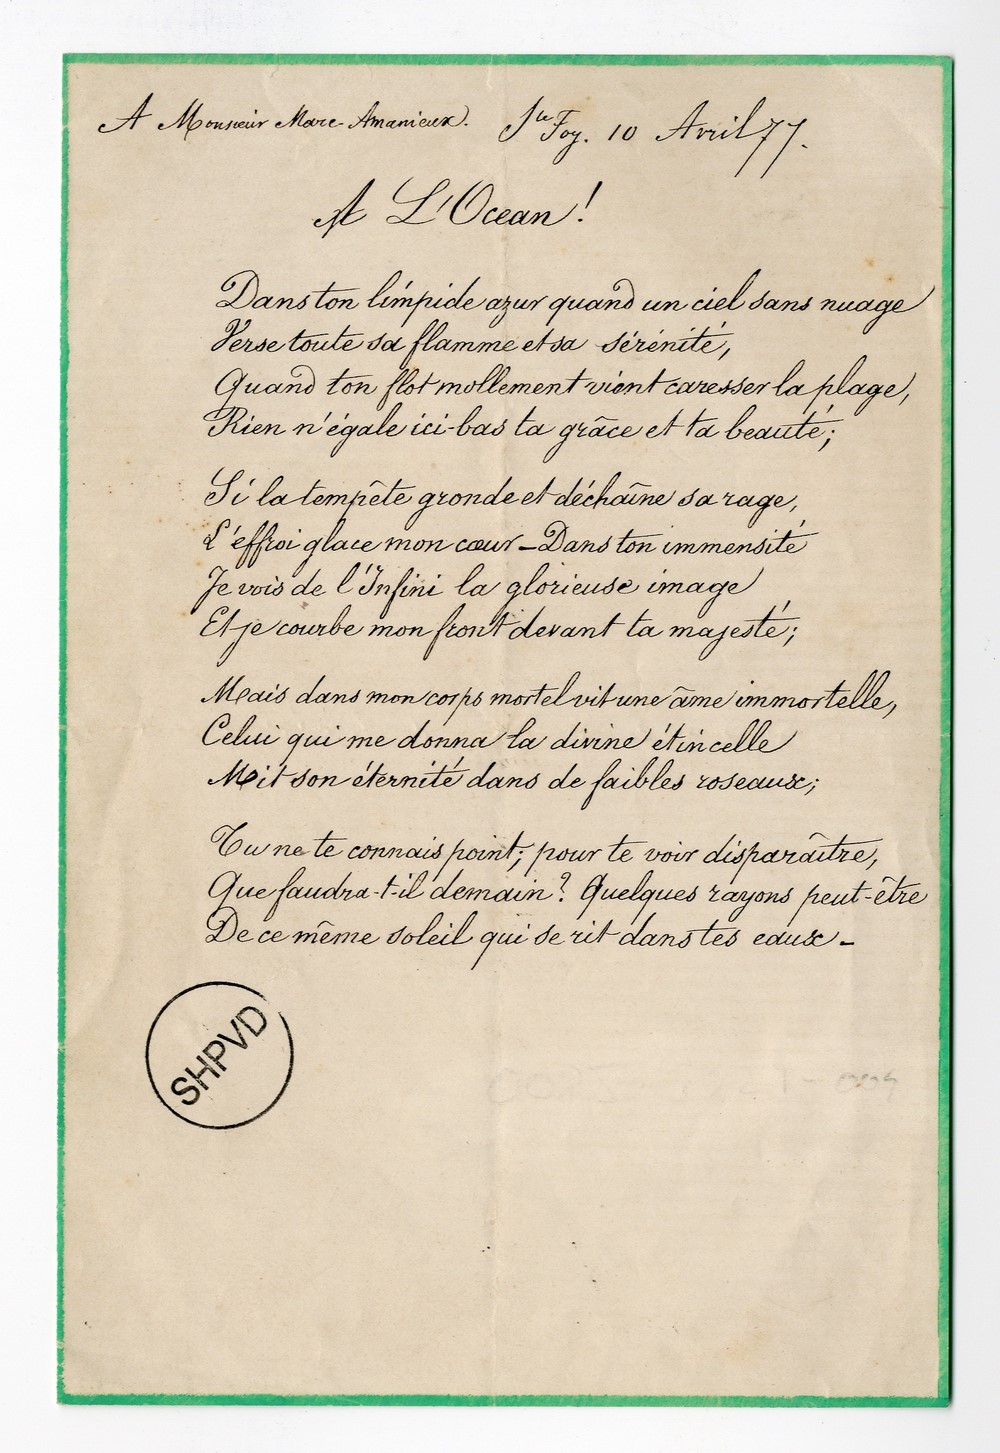 A Monsieur Marc Amanieux. Ste Foy. 10 Avril 77.
A L'Ocean!
Dans ton limpide azur quand un ciel sans nuage
Verse toute sa flamme et sa sérénité,
Quand ton flot mollement vient caresser la plage,
Rien n'égale ici-bas ta grâce et ta beauté;
Si la tempête gronde et déchaîne sa rage,
L'effroi glace mon cœur – Dans ton immensité
Je vois de l'Infini la glorieuse image
Et je courbe mon front devant ta majesté;
Mais dans mon corps mortel vit une âme immortelle,
Celui qui me donna la divine étincelle
Mit son éternité dans de faibles roseaux;
Tu ne te connais point; pour te voir disparaître,
Que faudra-t-il demain? Quelques rayons peut-être
De ce même soleil qui se rit dans tes eaux –
SHPVD